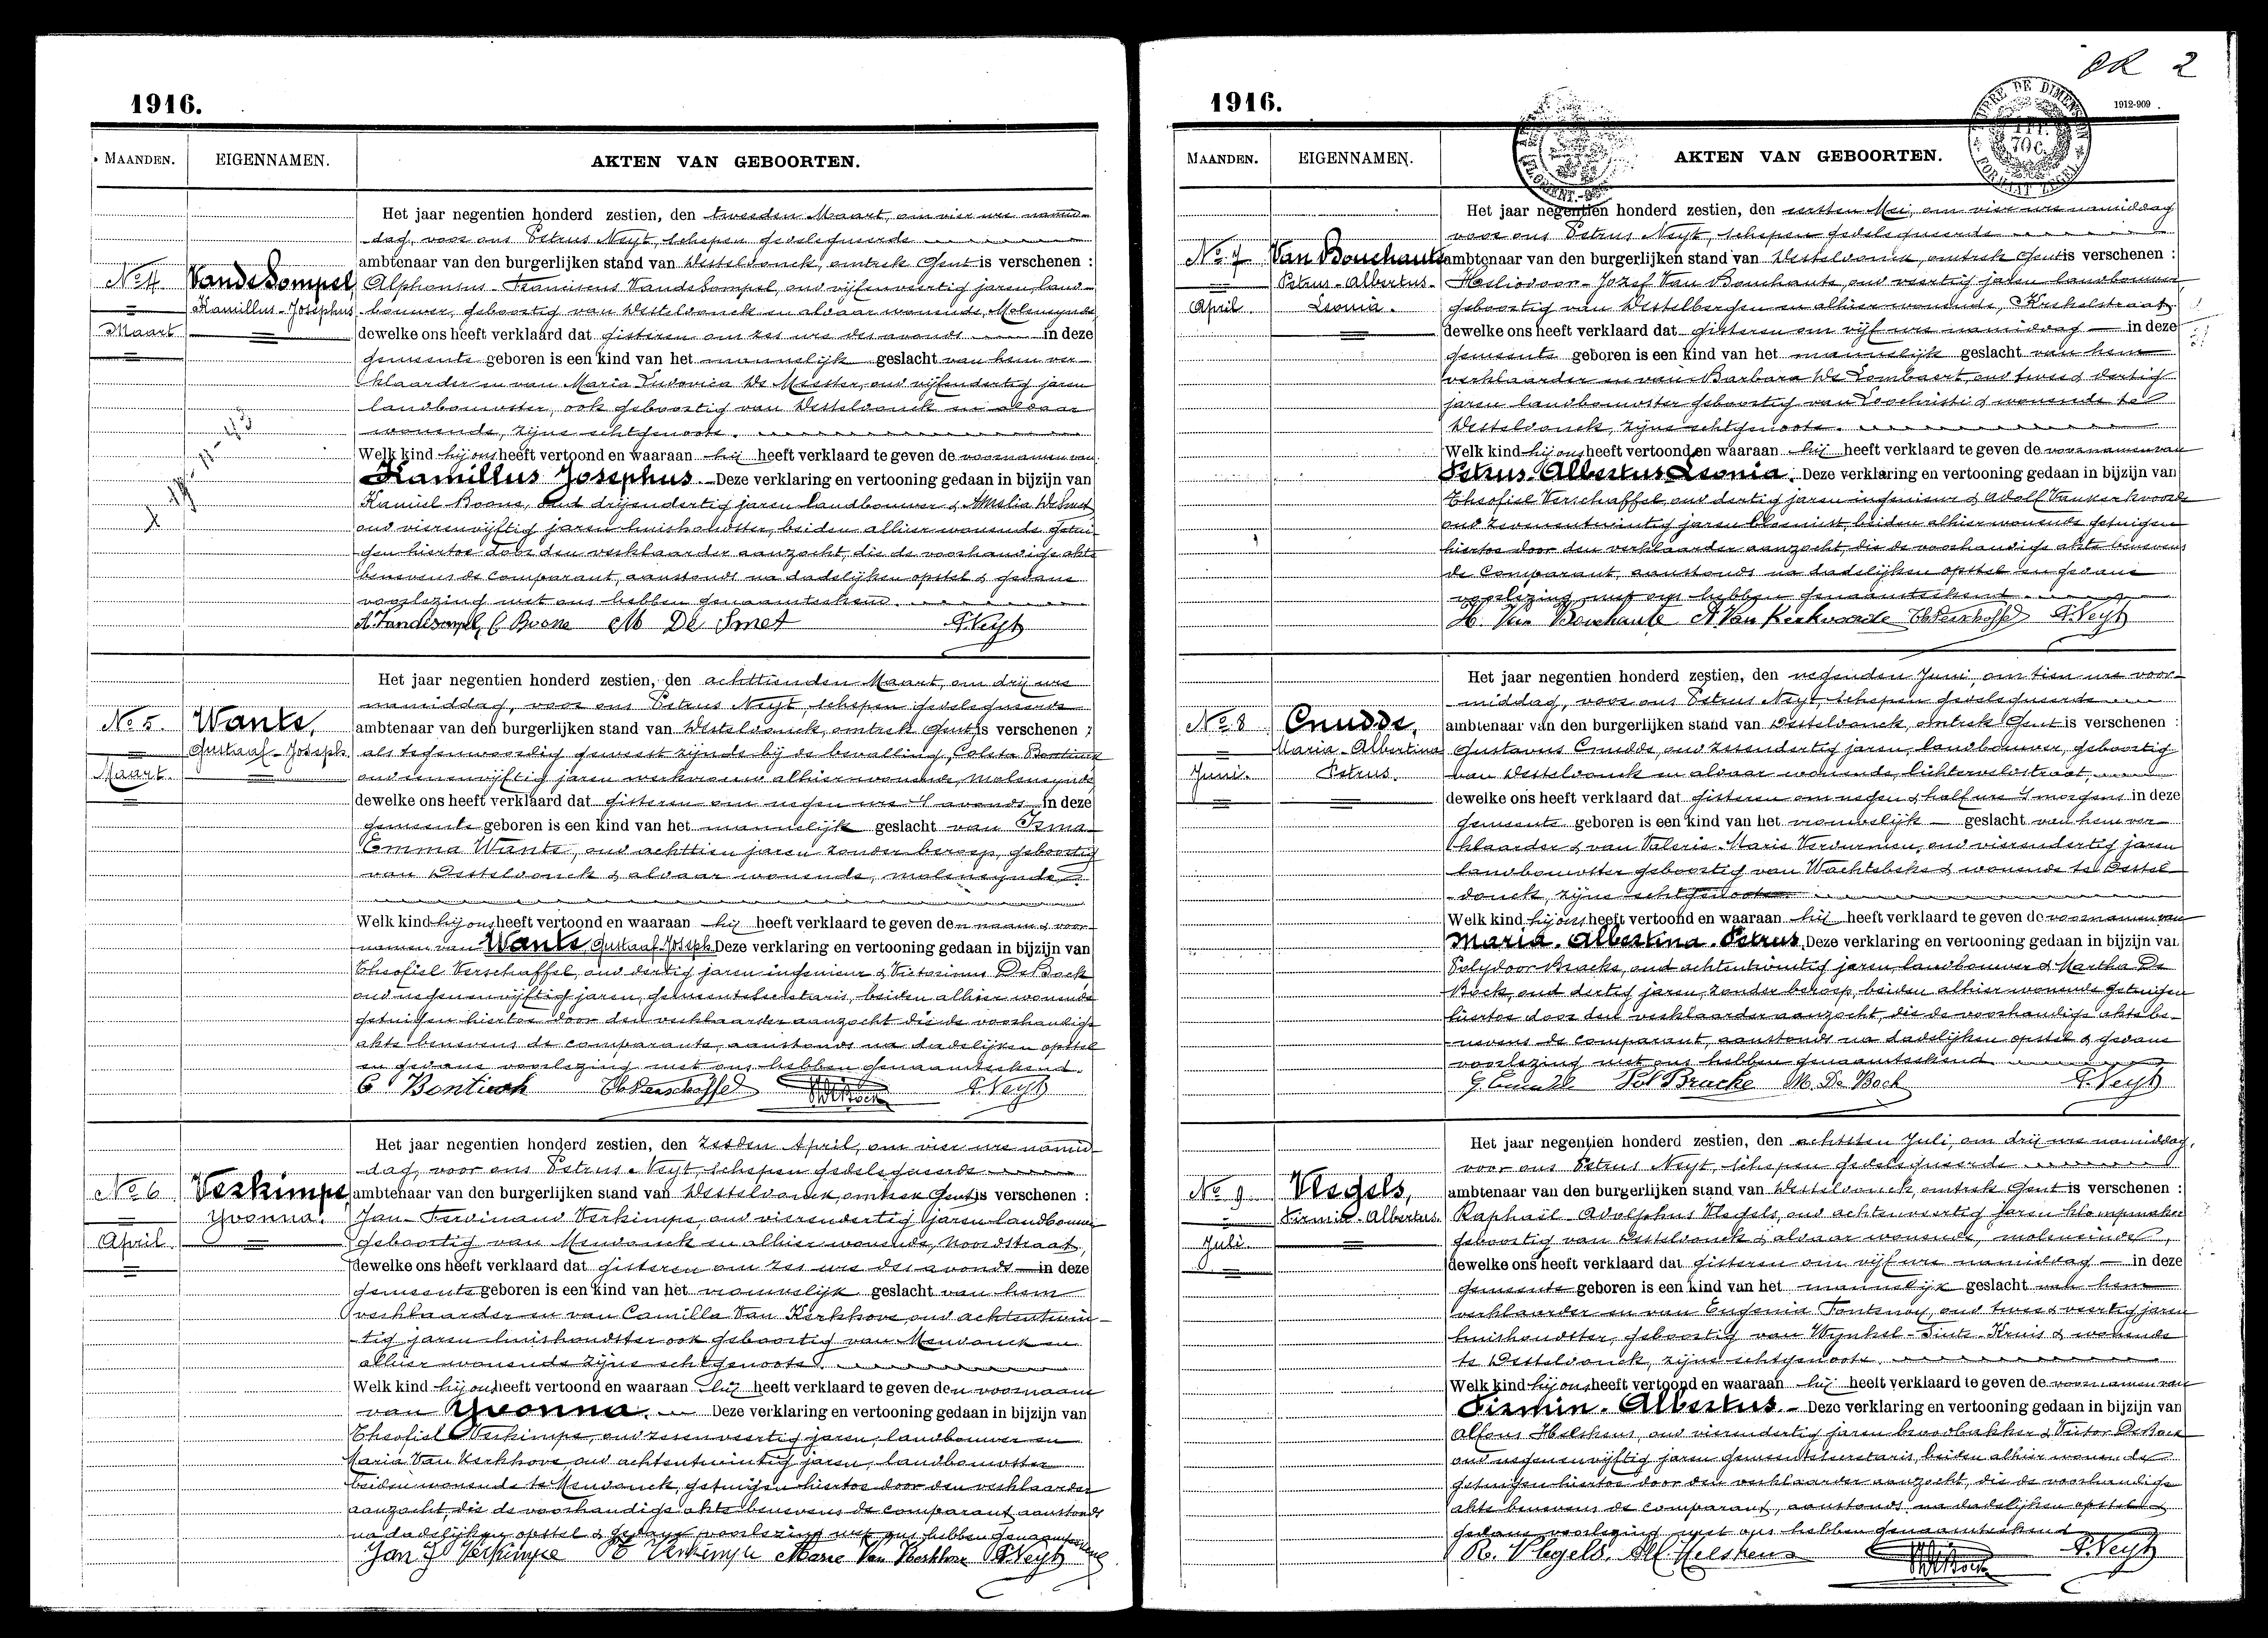 1916.
MAANDEN. EIGENNAMEN. AKTEN VAN GEBOORTEN.
Het jaar negentien honderd zestien, den tweeden Maart, om vier ure namid-
dag, voor ons Petrus Neyt, schepen gedelegueerde
ambtenaar van den burgerlijken stand van Desteldonck, omtrek Gent is verschenen :
No 4 VandeSompel Alphonsus Franciscus VandeSompel, oud vijfenveertig jaren, land-
Kamillus-Josephus bouwer, geboortig van Desteldonck en aldaar wonende, Moleneynde
Maart dewelke ons heeft verklaard dat gisteren om zes ure des avonds in deze
gemeente geboren is een kind van het mannelijk geslacht van hem ver-
klaarder en van Maria Ludovica De Meester, oud vijfendertig jaren
landbouwster, ook geboortig van Desteldonck en aldaar
wonende, zijne echtgenoote.
Welk kind hij ons heeft vertoond en waaraan hij heeft verklaard te geven de voornamen van
Kamillus Josephus. Deze verklaring en vertooning gedaan in bijzijn van
Kamiel Boone, oud drijendertig jaren landbouwer & Amelia De Smet
oud vierenvijftig jaren huishoudster, beiden alhier wonende getui-
gen hiertoe door den verklaarder aanzocht, die de voorhandige akte
benevens de comparant, aanstonds na dadelijken opstel & gedane
voorlezing met ons hebben genaamteekend.
A. Vandesompel C Boone M De Smet P. Neyt
Het jaar negentien honderd zestien, den achttienden Maart, om drij ure
namiddag, voor ons Petrus Neyt, schepen gedelegueerde
No 5. Wante, ambtenaar van den burgerlijken stand van Desteldonck, omtrek Gent is verschenen ;
Gustaaf-Joseph. als tegenwoordig geweest zijnde bij de bevalling, Coleta Bontinck
Maart. oud eenenvijftig jaren werkvrouw alhier wonende, Moleneynde
dewelke ons heeft verklaard dat gisteren om negen ure 's avonds in deze
gemeente geboren is een kind van het mannelijk geslacht van Irma
Emma Wante, oud achttien jaren zonder beroep, geboortig
van Desteldonck & aldaar wonende, moleneynde
Welk kind hij ons heeft vertoond en waaraan hij heeft verklaard te geven den naam & voor-
namen van Wante Gustaaf Joseph Deze verklaring en vertooning gedaan in bijzijn van
Theofiel Verschaffel, oud dertig jaren ingenieur & Victorinus De Bock
oud negenenvijftig jaren, gemeentesecretaris, beiden alhier wonende
getuigen hiertoe door den verklaarder aanzocht die de voorhandige
akte benevens de comparante, aanstonds na dadelijken opstel
en gedane voorlezing met ons hebben genaamteekend.
C Bontinck Th. Verschaffel P. Neyt
Het jaar negentien honderd zestien, den zesden April, om vier ure namid-
dag, voor ons Petrus Neyt, schepen gedelegueerde
No 6 Verkimpe ambtenaar van den burgerlijken stand van Desteldonck, omtrek Gent is verschenen :
Yvonna. Jan-Ferdinand Verkimpe, oud vierendertig jaren landbouwer
April geboortig van Mendonck en alhier wonende, Noordstraat,
dewelke ons heeft verklaard dat gisteren om zes ure des avonds in deze
gemeente geboren is een kind van het vrouwelijk geslacht van hem
verklaarder en van Camilla Van Kerkhove, oud achtentwin-
tig jaren huishoudster ook geboortig van Mendonck en
alhier wonende zijne echtgenoote.
Welk kind hij ons heeft vertoond en waaraan hij heeft verklaard te geven den voornaam
van Yvonna. Deze verklaring en vertooning gedaan in bijzijn van
Theofiel Verkimpe, oud zesenveertig jaren, landbouwer en
Maria Van Kerkhove, oud achtentwintig jaren, landbouwster
beiden wonende te Mendonck, getuigen hiertoe door den verklaarder
aanzocht, die de voorhandige akte benevens de comparant aanstonds
na dadelijken opstel & gedane voorlezing met ons hebben genaamteekend
Jan F Verkimpe Th Verkimpe Marie Van Kerkhove P. Neyt
OR 2
1916.
1912-909
MAANDEN. EIGENNAMEN. AKTEN VAN GEBOORTEN.
Het jaar negentien honderd zestien, den eersten Mei, om vier ure namiddag
voor ons Petrus Neyt, schepen gedelegueerde
No 7 Van Bouchaute ambtenaar van den burgerlijken stand van Desteldonck, omtrek Gent is verschenen :
Petrus-Albertus- Heliodoor-Jozef Van Bouchaute, oud veertig jaren landbouwer
April. Leonia. geboortig van Destelbergen en alhier wonende, Krekelstraat
dewelke ons heeft verklaard dat gisteren om vijf ure namiddag in deze
gemeente geboren is een kind van het mannelijk geslacht van hem
verklaarder en van Barbara De Lombaert, oud twee & dertig
jaren landbouwster geboortig van Loochristi & wonende te
Desteldonck, zijne echtgenoote.
Welk kind hij ons heeft vertoond en waaraan hij heeft verklaard te geven de voornamen van
Petrus Albertus Leonia. Deze verklaring en vertooning gedaan in bijzijn van
Theofiel Verschaffel oud dertig jaren ingenieur & Adolf Vankerkvoorde
oud zevenentwintig jaren bloemist, beiden alhier wonende getuigen
hiertoe door den verklaarder aanzocht, die de voorhandige akte benevens
de comparant, aanstonds na dadelijken opstel en gedane
voorlezing met ons hebben genaamteekend.
H. Van Bouchaute A Van Kerkvoorde Th Verschaffel P. Neyt
Het jaar negentien honderd zestien, den negenden Juni, om tien ure voor-
middag, voor ons Petrus Neyt, schepen gedelegueerde
No 8 Cnudde, ambtenaar van den burgerlijken stand van Desteldonck, omtrek Gent is verschenen :
Maria-Albertina Gustavus Cnudde, oud zesendertig jaren, landbouwer, geboortig
Juni. Petrus. van Desteldonck en aldaar wonende, lichterveldstraat,
dewelke ons heeft verklaard dat gisteren om negen & half ure 's morgens in deze
gemeente geboren is een kind van het vrouwelijk geslacht van hem ver-
klaarder & van Valerie-Marie Verdurmen, oud vierendertig jaren
landbouwster geboortig van Wachtebeke & wonende te Destel-
donck, zijne echtgenoote.
Welk kind hij ons heeft vertoond en waaraan hij heeft verklaard te geven de voornamen van
Maria. Albertina Petrus. Deze verklaring en vertooning gedaan in bijzijn van
Polydoor Bracke, oud achtentwintig jaren, landbouwer & Martha De
Bock, oud dertig jaren, zonder beroep, beiden alhier wonende getuigen
hiertoe door den verklaarder aanzocht, die de voorhandige akte be-
nevens de comparant, aanstonds na dadelijken opstel & gedane
voorlezing met ons hebben genaamteekend
G Cnudde Pol Bracke M. De Bock P. Neyt
Het jaar negentien honderd zestien, den achtsten Juli, om drij ure namiddag,
voor ons Petrus Neyt, schepen gedelegueerde
No 9 Vlegels, ambtenaar van den burgerlijken stand van Desteldonck, omtrek Gent is verschenen :
Firmin-Albertus. Raphaël-Adolphus Vlegels, oud achtenveertig jaren klompmaker
Juli. geboortig van Desteldonck & aldaar wonende, moleneinde,
dewelke ons heeft verklaard dat gisteren om vijf ure namiddag in deze
gemeente geboren is een kind van het mannelijk geslacht van hem
verklaarder en van Eugenia Fontenoy, oud twee & veertig jaren
huishoudster, geboortig van Wynkel-Sinte-Kruis & wonende
te Desteldonck, zijne echtgenoote.
Welk kind hij ons heeft vertoond en waaraan hij heeft verklaard te geven de voornamen van
Firmin. Albertus. Deze verklaring en vertooning gedaan in bijzijn van
Alfons Helskens, oud vierendertig jaren broodbakker & Victor De Bock
oud negenenvijftig jaren gemeentesecretaris, beiden alhier wonende
getuigen hiertoe door den verklaarder aanzocht, die de voorhandige
akte benevens de comparant, aanstonds na dadelijken opstel &
gedane voorlezing met ons hebben genaamteekend
R. Vlegels. Alf Helskens P. Neyt